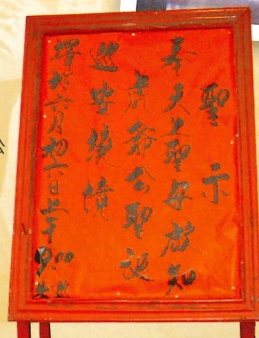 聖示
奉天上聖母啟知
虎爺公聖誕
巡安繞境
擇於六月初六日上午